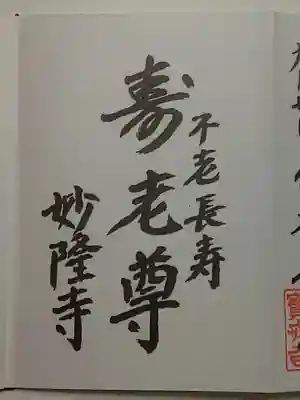 不老長寿
寿老尊
妙隆寺